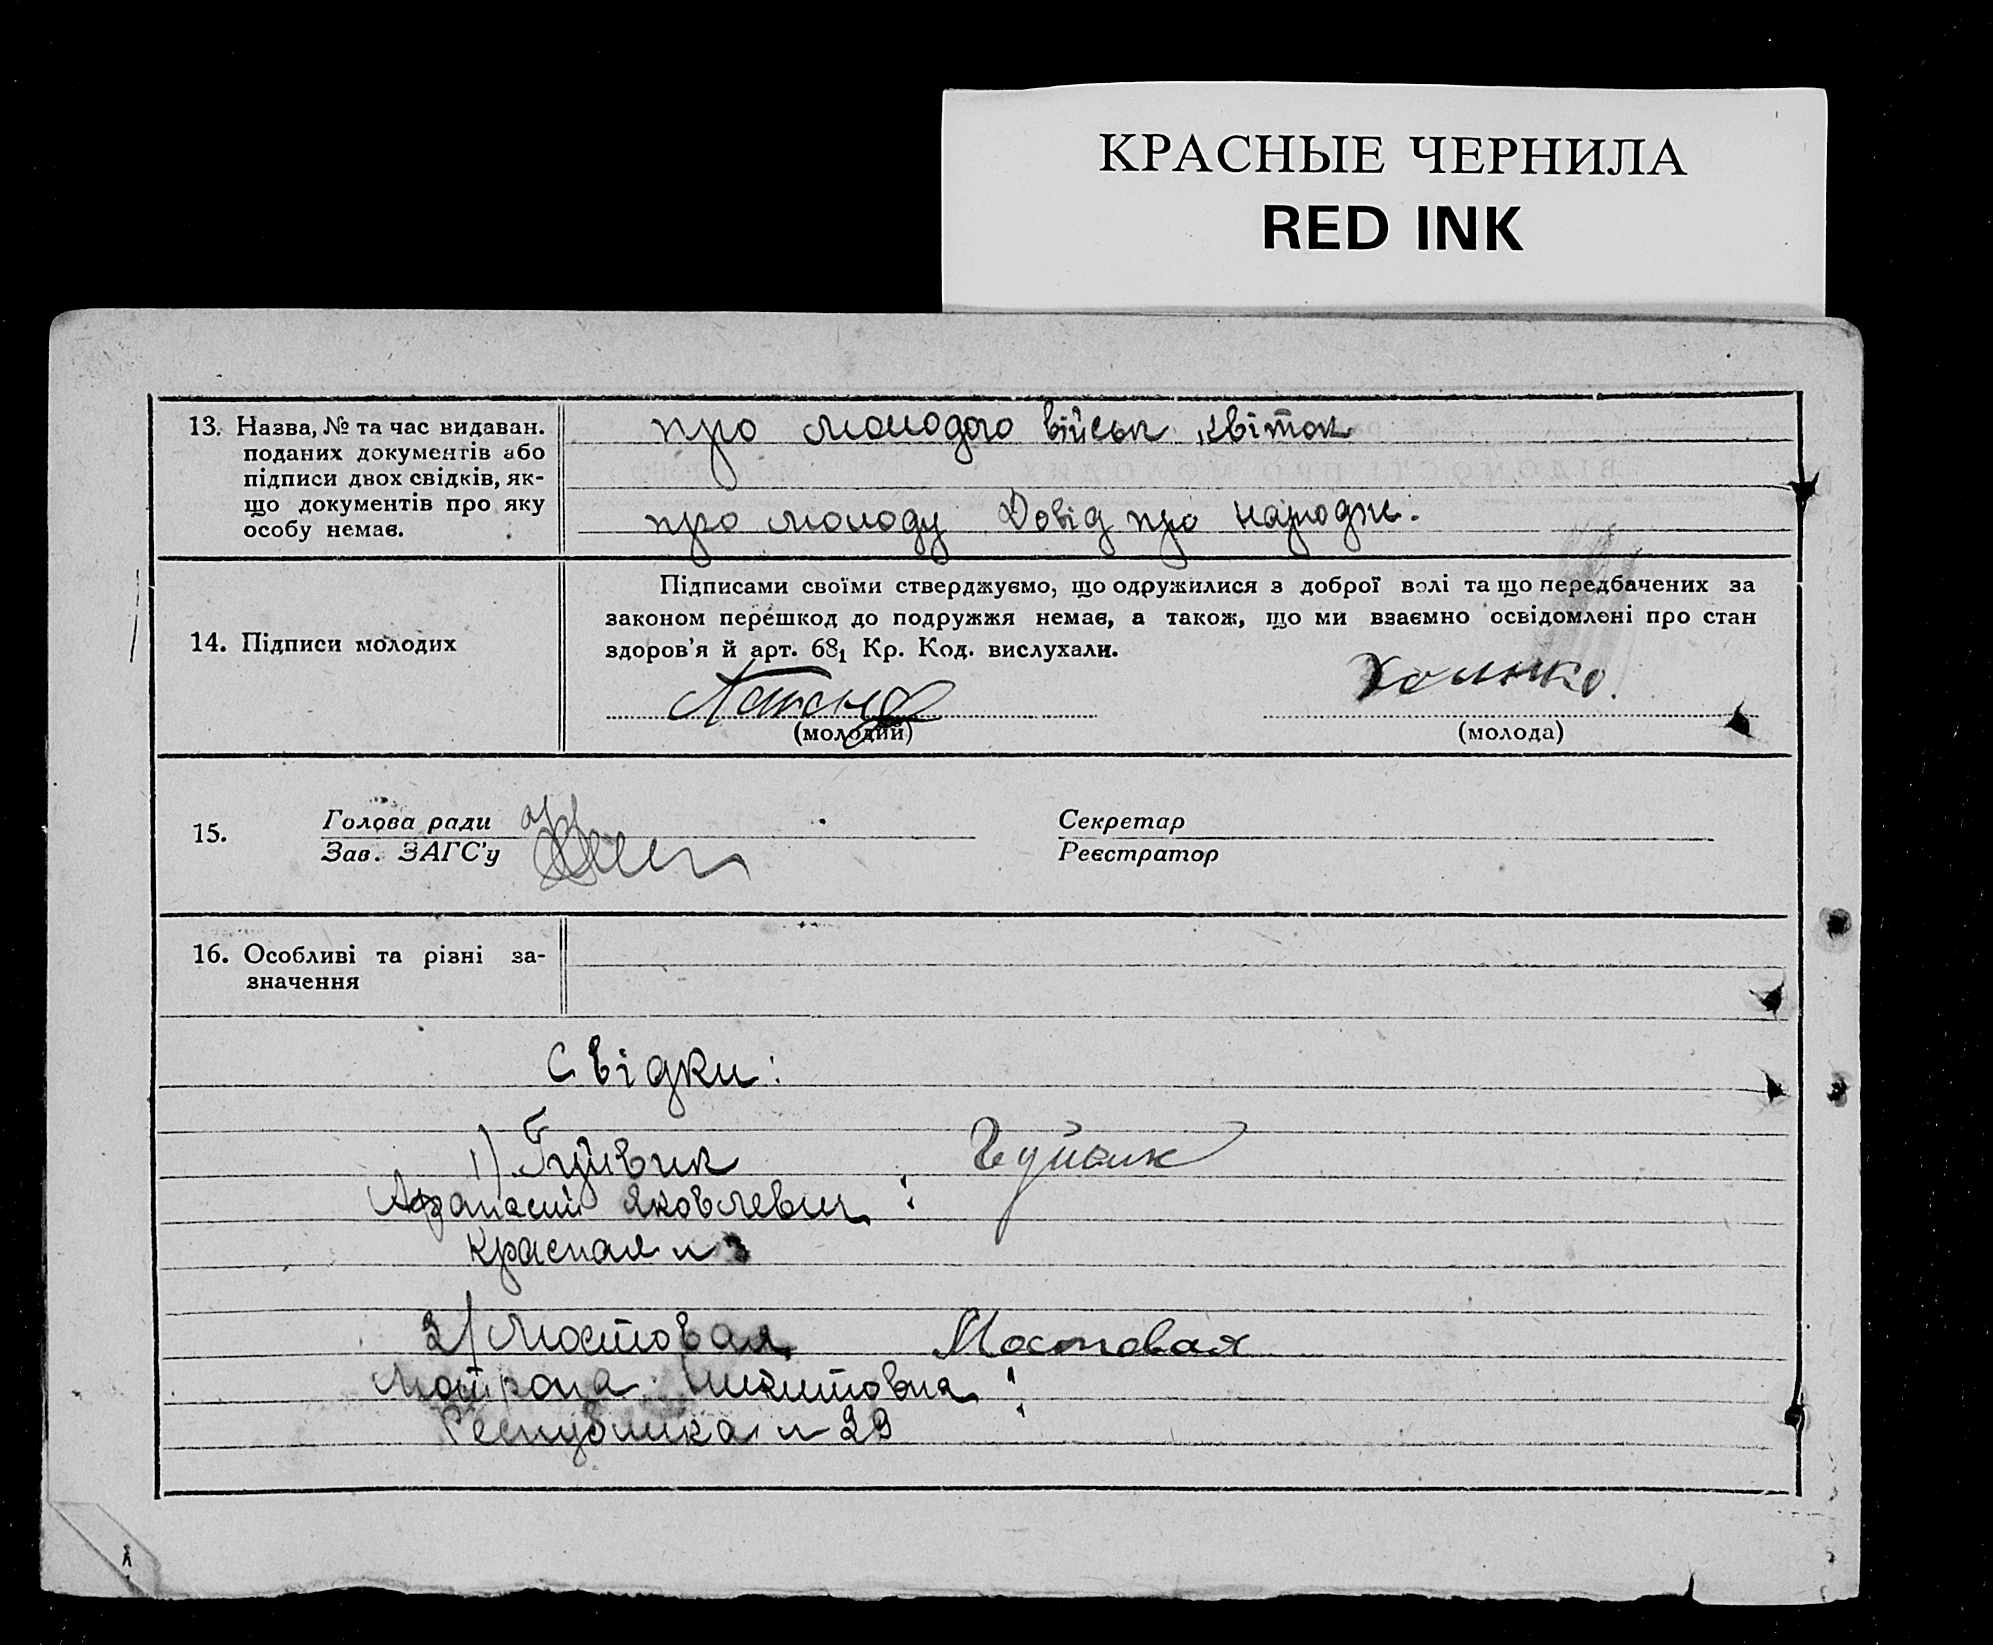 КРАСНЫЕ ЧЕРНИЛА
RED INK
13. Назва, № та час видаван.
поданих документів або
підписи двох свідків, як-
що документів про яку
особу немає.
про молодого військ квіток
про молоду Довід про народж.
14. Підписи молодих
Підписами своїми стверджуємо, що одружилися з доброї волі та що передбачених за
законом перешкод до подружжя немає, а також, що ми взаємно освідомлені про стан
здоров'я й арт. 68₁ Кр. Код. вислухали.
(молодий)
(молода)
15.
Голова ради
Зав. ЗАГС'у
Секретар
Реєстратор
16. Особливі та різні за-
значення
Свідки:
1) Гуйвик Гуйвик
Афанасий Яковлевич
Красная № 3
2/ Мостовая Мостовая
Мотрона Никитовна
Республика № 29